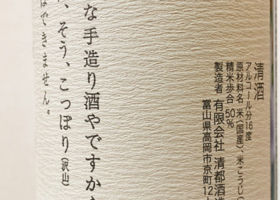 清酒
アルコール分16度
原材料名 米(国産)・米こうじ(
精米歩合 50%
製造者 有限会社 清都酒造
富山県高岡市京町12
な手造り酒やですから
、そう、こっぽり(沢山)
はできません。